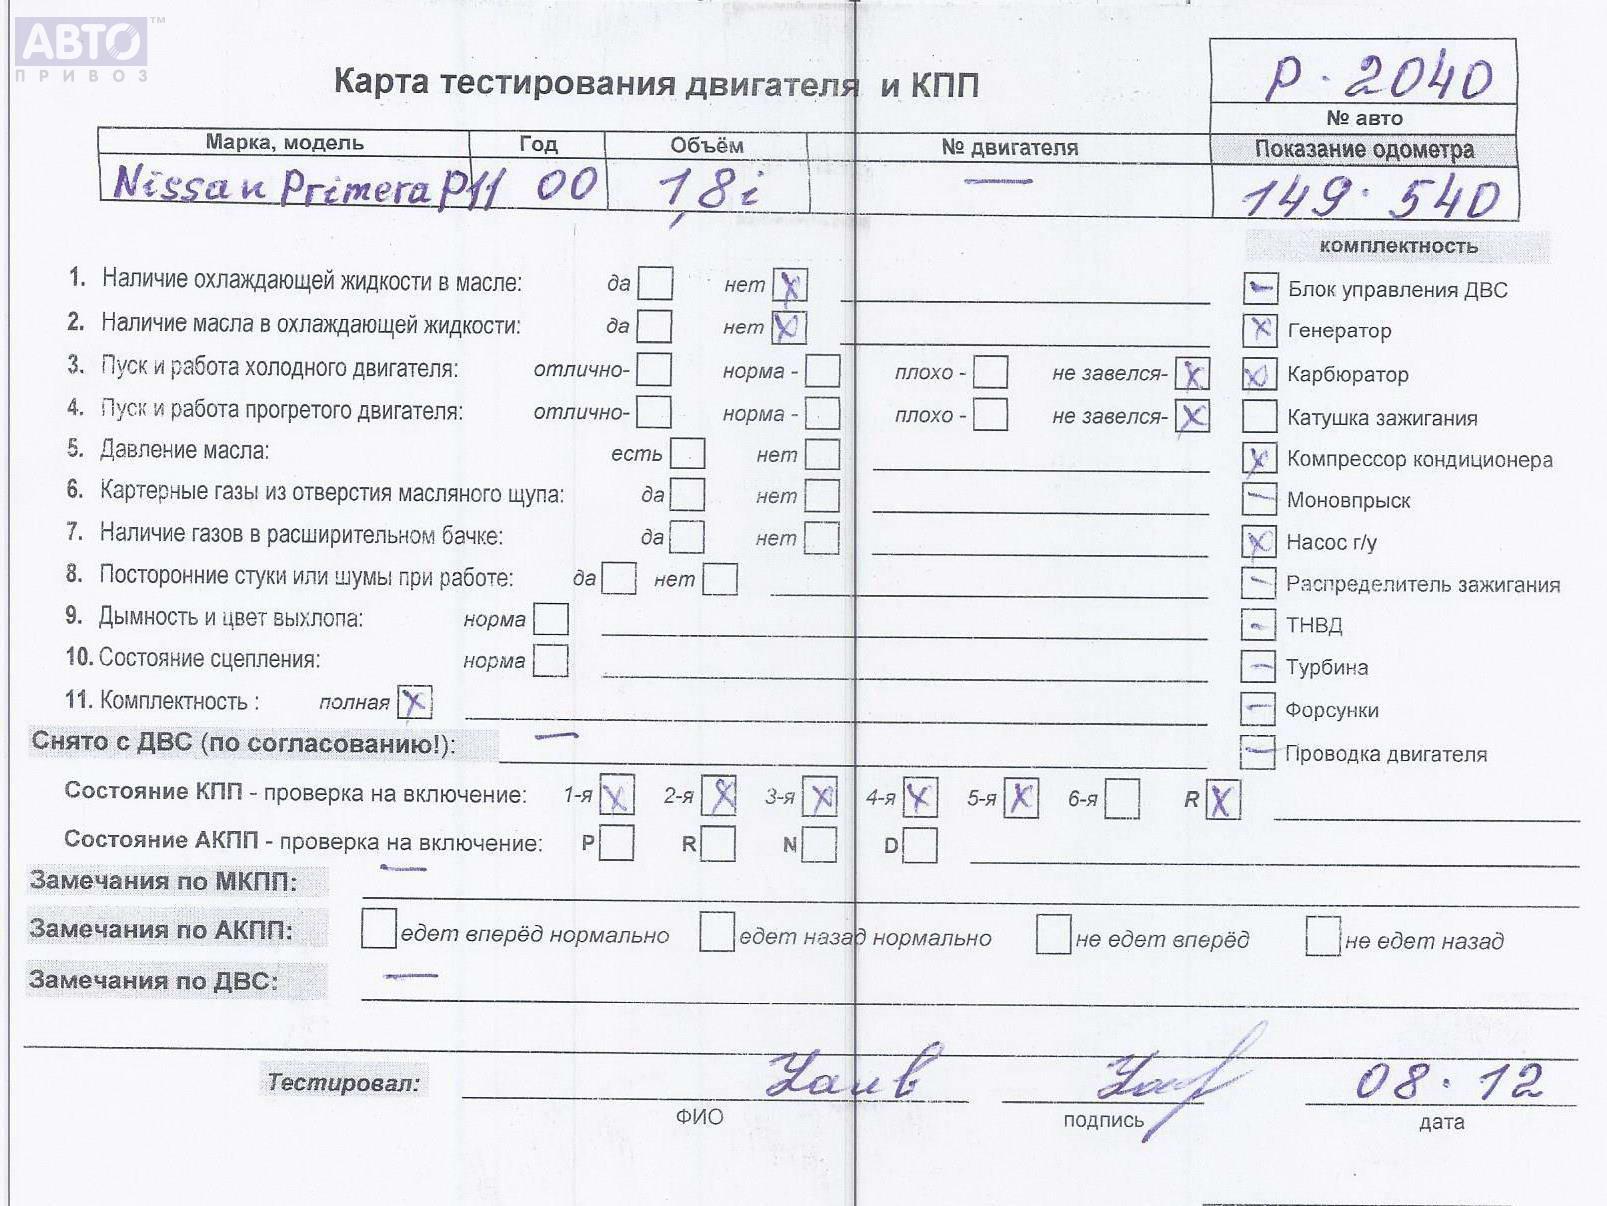 АВТО™
ПРИВОЗ
Карта тестирования двигателя и КПП
P. 2040
№ авто
Марка, модель Год Объём № двигателя Показание одометра
Nissan Primera P11 00 1,8i — 149.540
комплектность
1. Наличие охлаждающей жидкости в масле: да нет X
2. Наличие масла в охлаждающей жидкости: да нет X
3. Пуск и работа холодного двигателя: отлично- норма - плохо - не завелся- X
4. Пуск и работа прогретого двигателя: отлично- норма - плохо - не завелся- X
5. Давление масла: есть нет
6. Картерные газы из отверстия масляного щупа: да нет
7. Наличие газов в расширительном бачке: да нет
8. Посторонние стуки или шумы при работе: да нет
9. Дымность и цвет выхлопа: норма
10. Состояние сцепления: норма
11. Комплектность : полная X
— Блок управления ДВС
X Генератор
X Карбюратор
Катушка зажигания
X Компрессор кондиционера
— Моновпрыск
X Насос г/у
— Распределитель зажигания
— ТНВД
— Турбина
— Форсунки
— Проводка двигателя
Снято с ДВС (по согласованию!): —
Состояние КПП - проверка на включение: 1-я X 2-я X 3-я X 4-я X 5-я X 6-я R X
Состояние АКПП - проверка на включение: P R N D
Замечания по МКПП: —
Замечания по АКПП: едет вперёд нормально едет назад нормально не едет вперёд не едет назад
Замечания по ДВС: —
Тестировал: 08.12
ФИО подпись дата